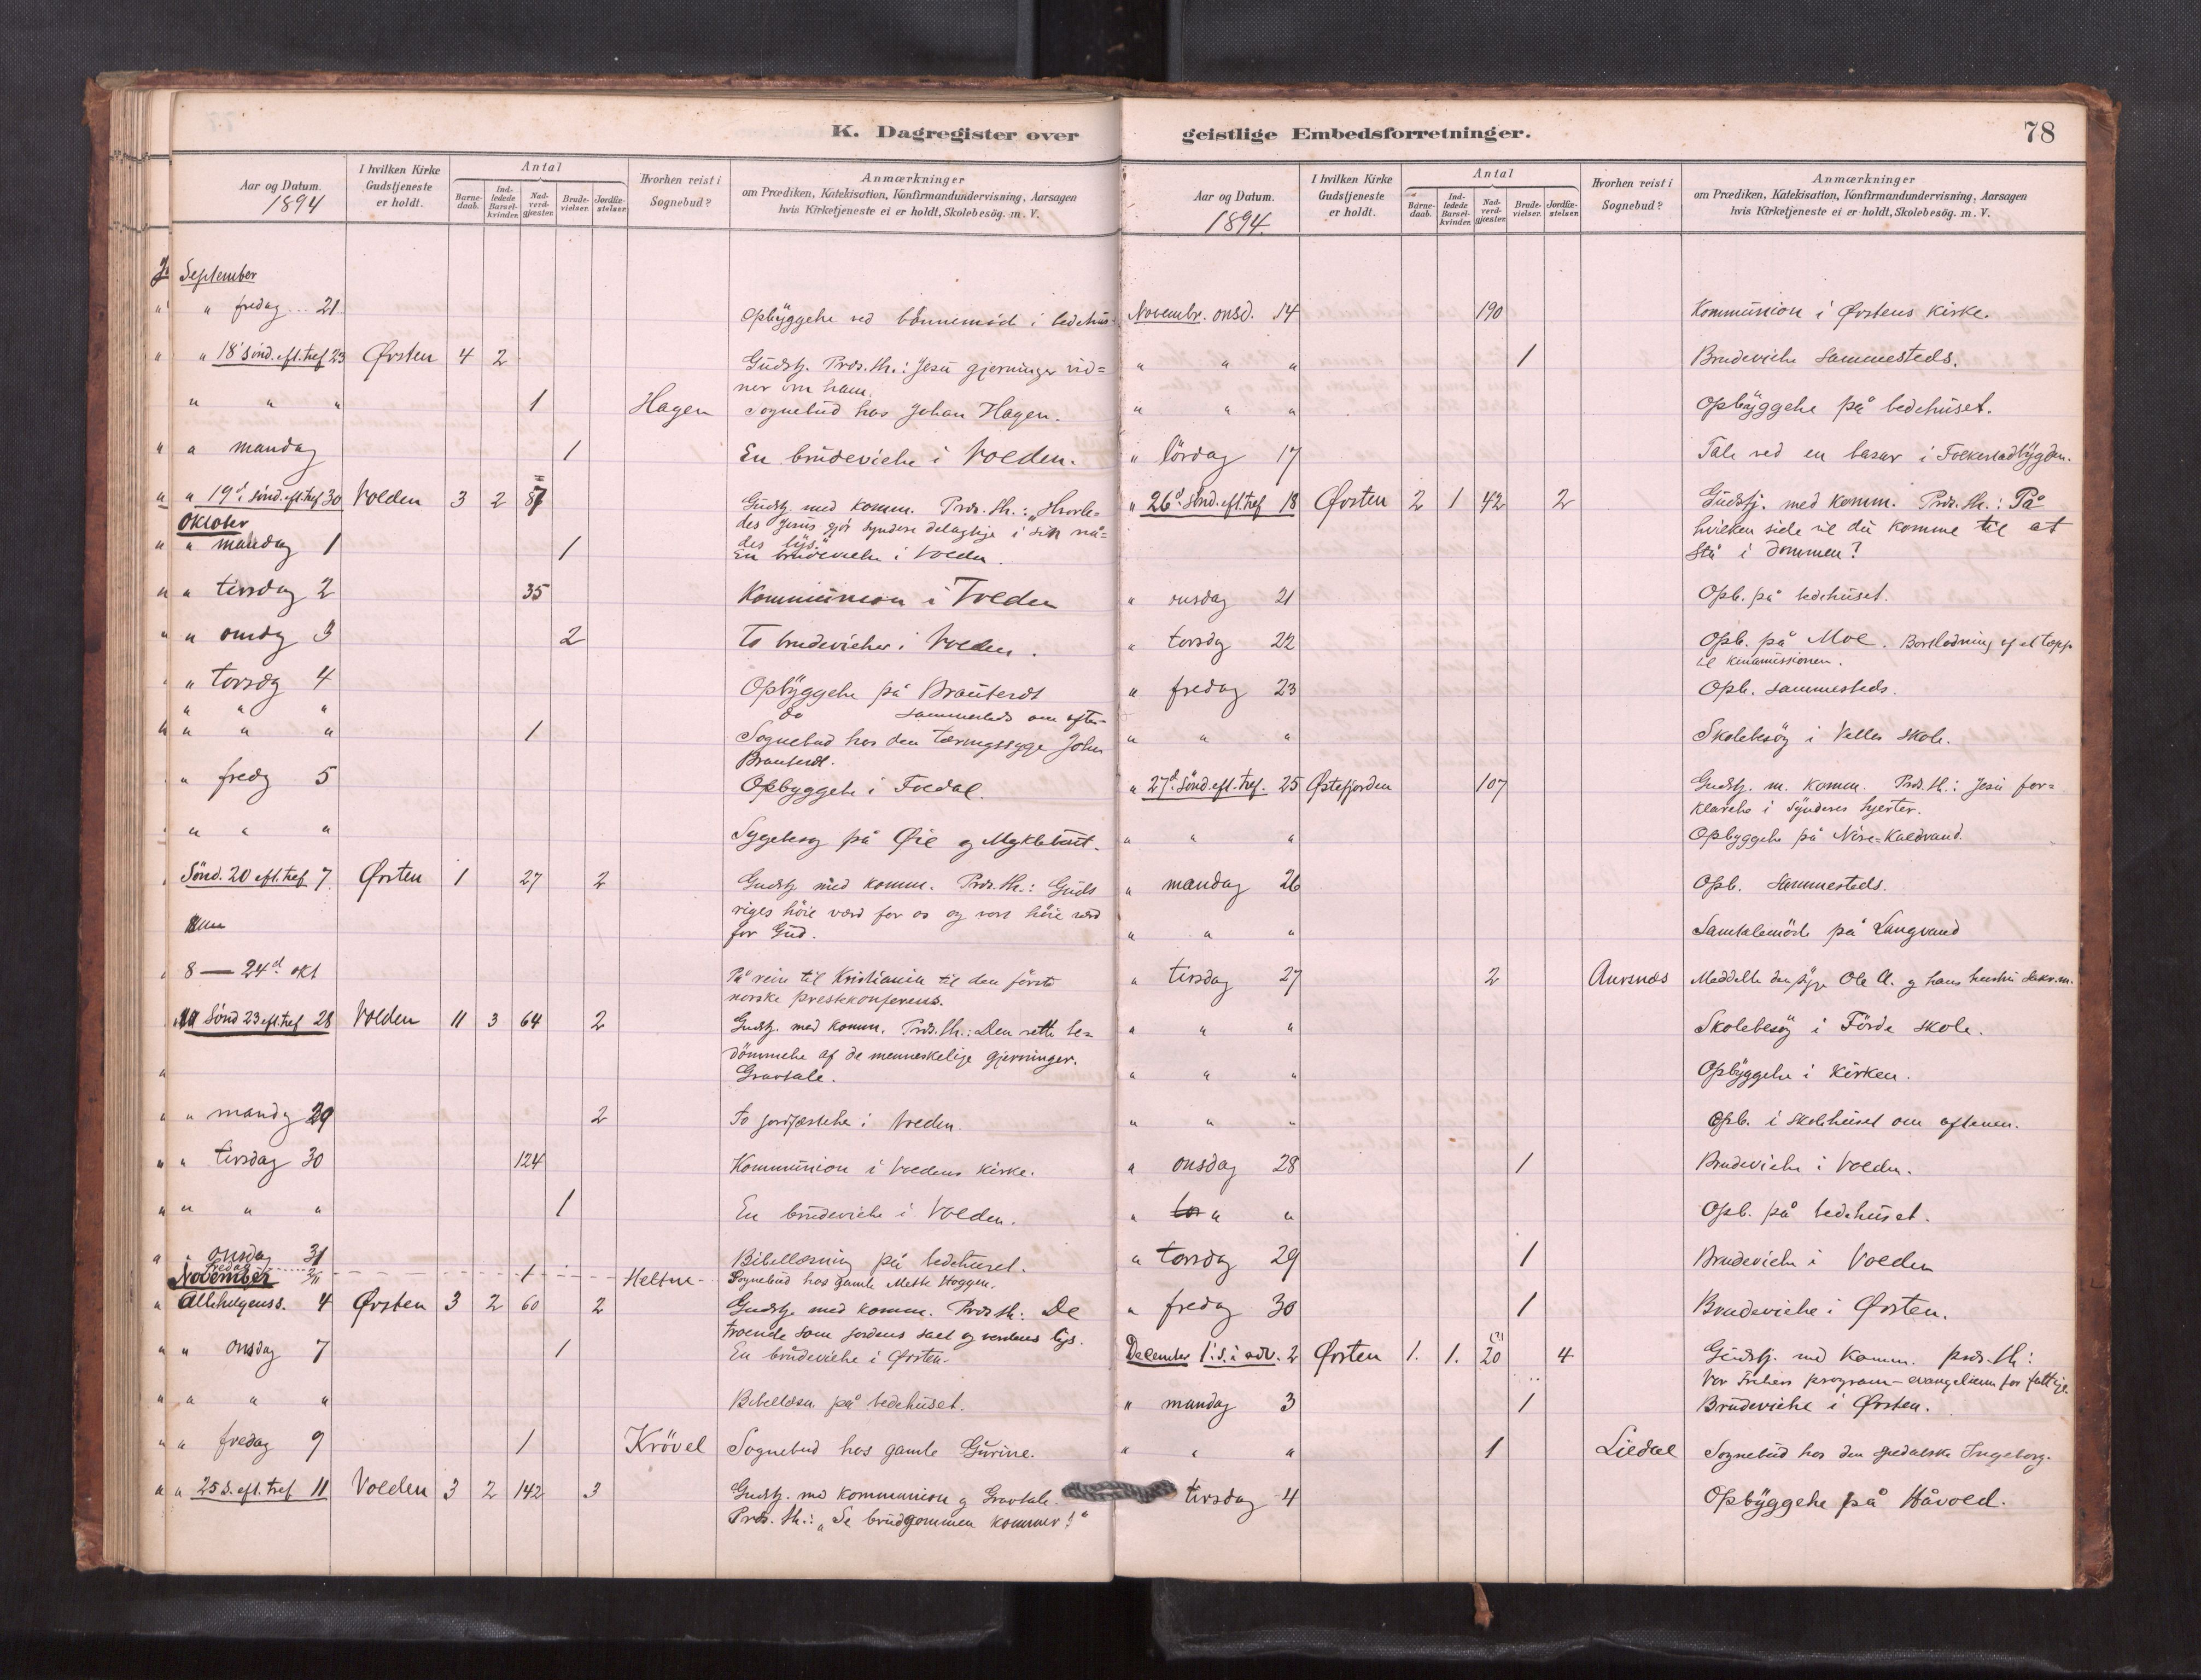 K. Dagregister over
geistlige Embedsforretninger.
78
Aar og Datum.
1894
I hvilken Kirke Gudstjeneste er holdt.
Antal
Barne-daab.
Ind-ledede Barsel-kvinder.
Nad-verd-gjæster.
Brude-vielser.
Jordfæ-stelser.
Hvorhen reist i Sognebud?
Anmærkninger
om Prædiken, Katekisation, Konfirmandundervisning, Aarsagen
hvis Kirketjeneste ei er holdt, Skolebesög. m. V.
September
" " fredag 21 Opbyggelse ved bönnemöde i bedehus.
" " 18' sönd. eft. tref 23 Ørsten 4 2 Gudstj. Præs. th.: Jesu gjerninger vid=
ner om ham.
" " " 1 Hagen Sognebud hos Johan Hagen.
" " mandag 1 En brudevielse i Volden.
" " 19d. sönd. eft. tref 30 Volden 3 2 87 Gudstj. med komm. Præd. th.: "Hvorle=
des Jesus gjör syndere delagtige i sin nå=
des lys."
Oktober
" " mandag 1 1 En brudevielse i Volden.
" " tirsdag 2 35 Kommunion i Volden
" " onsdg 3 2 To brudevielser i Volden.
" " torsdg 4 Opbyggelse på Brautesdt
" " " do sammesteds om aften-
" " " 1 Sognebud hos den tæringssyge John
" fredg 5 Opbyggelse i Foldal.
" " " Sygebesög på Øie og Myklebust.
Sönd. 20 eft. tref 7 Ørsten 1 27 2 Gudstj. med komm. Præd. th.: Guds
riges höie værd for os og vort höie værd
for Gud.
8 — 24d okt På reise til Kristiania til den förste
norske prestekonferens.
Sönd 23 eft. tref 28 Volden 11 3 64 2 Gudstj. med komm. Præd. th.: Den rette be=
dömmelse af de menneskelige gjerninger.
Gravtale.
" " mandg 29 2 To jordfæstelse i Volden.
" " tirsdag 30 124 Kommunion i Voldens kirke.
" " " " 1 En brudevielse i Volden.
" " onsdag 31 Bibellæsning på bedehuset.
November
fredag 2/11 1 Heltne Sognebud hos gamle Mette Hoggen.
" Allehelgenss. 4 Ørsten 3 2 60 2 Gudstj. med komm. Præd. th: De
troende som jordens salt og verdens lys.
" " onsdag 7 1 En brudevielse i Ørsten.
" " " " Bibellæsn. på bedehuset.
" " fredag 9 1 Krövel Sognebud hos gamle Gurine.
" " 25 s. eft. tref 11 Volden 3 2 142 3 Gudstj. med kommunion og Gravtale.
Præd. th.: "Se brudgommen kommer!"
Aar og Datum.
1894.
I hvilken Kirke Gudstjeneste er holdt.
Antal
Barne-daab.
Ind-ledede Barsel-kvinder.
Nad-verd-gjæster.
Brude-vielser.
Jordfæ-stelser.
Hvorhen reist i Sognebud?
Anmærkninger
om Prædiken, Katekisation, Konfirmandundervisning, Aarsagen
hvis Kirketjeneste ei er holdt, Skolebesög. m. V.
Novembr. onsd. 14 190 Kommunion i Ørstens kirke.
" " " 1 Brudevielse sammesteds.
" " " Opbyggelse på bedehuset.
" lördag 17 Tale ved en basar i Folkestadbygden.
" 26d. sönd. eft. tref 18 Ørsten 2 1 42 2 Gudstj. med komm. Præd. th.: På
hvilken side vil du komme til at
stå i dommen?
" onsdag 21 Opb. på bedehuset.
" torsdg 22 Opb. på Moe. Bortlodning af et tæppe
til kinamissionen.
" fredag 23 Opb. sammesteds.
" " " Skolebesög i Velle skole.
" 27d. sönd. eft. tref. 25 Østefjorden 107 Gudstj. m. komm. Præd. th.: Jesu for=
klarelse i synderes hjerter.
" " " Opbyggelse på Nire-Kaldvand.
" mandag 26 Opb. sammesteds.
" " " Samtalemöde på Langvand
" tirsdag 27 2 Aursnes Meddelte den syge Ole A. og hans hustru sakrm.
" " " Skolebesög i Förde skole.
" " " Opbyggelse i kirken.
" " " Opb. i skolehuset om aftenen.
" onsdag 28 1 Brudevielse i Volden.
" " " Opb. på bedehuset.
" torsdg 29 1 Brudevielse i Volden
" fredag 30 1 Brudevielse i Ørsten.
December 1. s. i adv. 2 Ørsten 1. 1. 20 4 Gudstj. med komm. præd. th:
Vor Frelsers program — evangelium for fattige.
" mandag 3 1 Brudevielse i Ørsten.
" " " 1 Liedal Sognebud hos den spedalske Ingeborg.
tirsdag 4 Opbyggelse på Håvold.